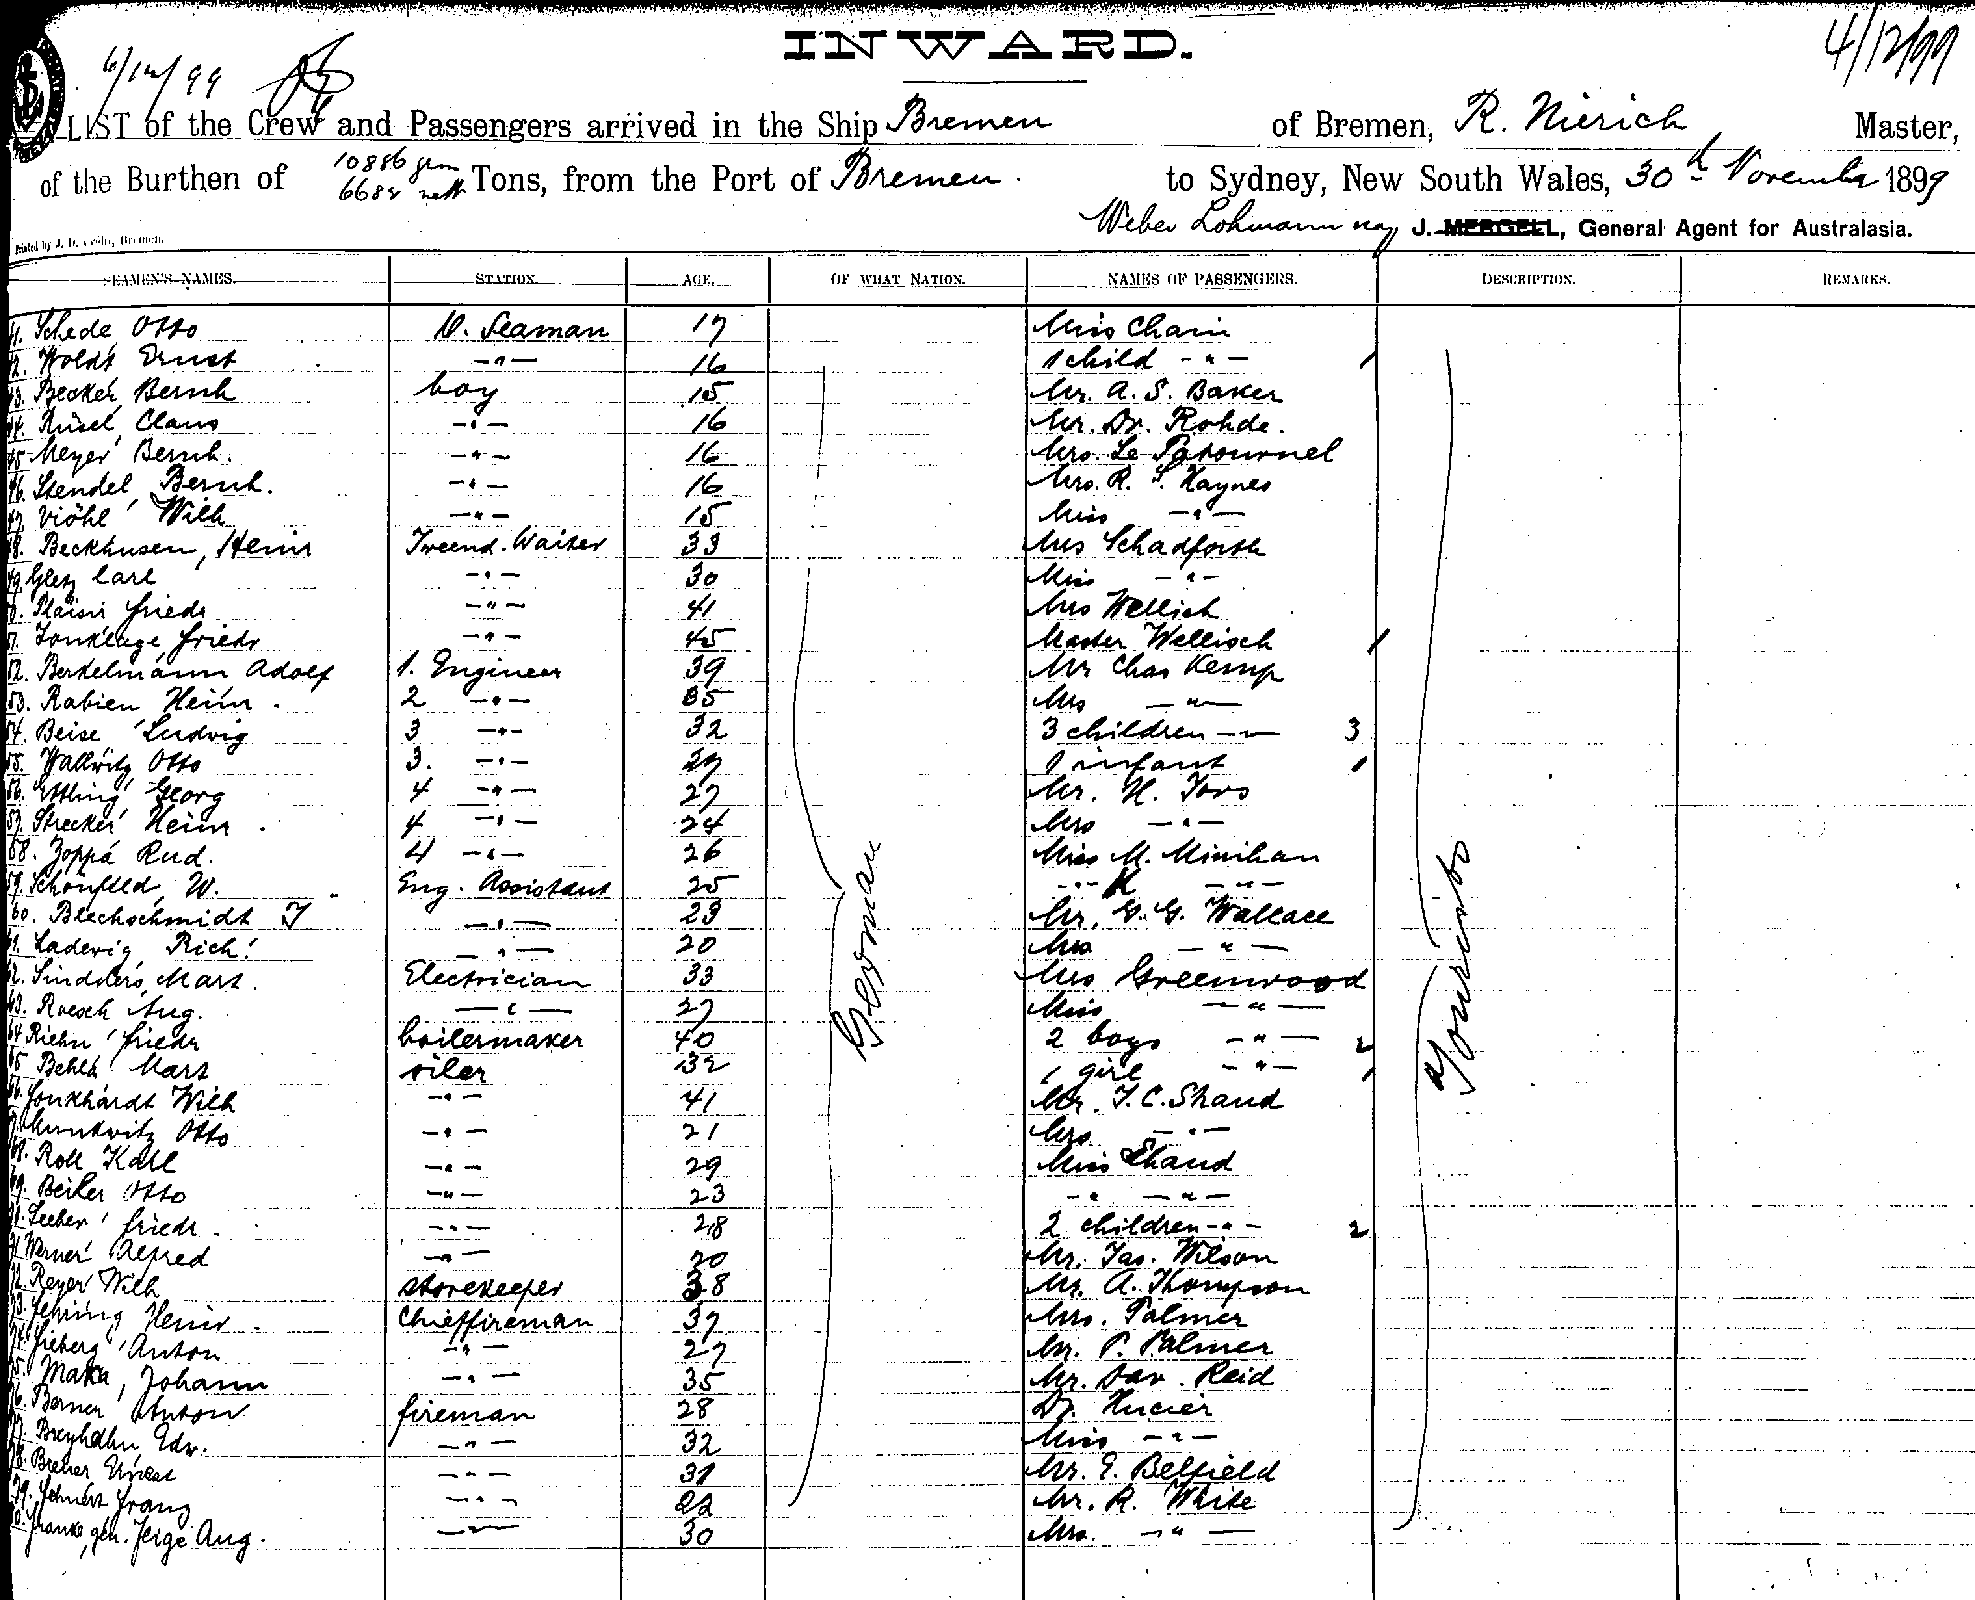 INWARD.
4/12/99
6/12/99
LIST of the Crew and Passengers arrived in the Ship Bremen of Bremen, R. Nierich Master,
of the Burthen of 10886 Tons, from the Port of Bremen. to Sydney, New South Wales, 30th November 1899
6682 nett
Weber Lohmann J. MERGELL, General Agent for Australasia.
SEAMEN'S NAMES. STATION. AGE. OF WHAT NATION. NAMES OF PASSENGERS. DESCRIPTION. REMARKS.
Schede, Otto O. Seaman 17 Miss Chain
Woldt Ernst -"- 16 1 child -"- 1
Becker, Bernh boy 15 Mr. A. S. Baker
Rüsel, Claus -"- 16 Mr. Dr. Rohde.
Meyer Bernh. -"- 16 Mrs. Le Patournel
46. Stendel, Bernh. -"- 16 Mrs. R. S. Haynes
Viöhl Wilh -"- 15 Miss -"-
Beckhusen, Heinr Waiter 33 Mrs Schadforth
Gletz Carl -"- 30 Miss -"-
Plaisir Friedr -"- 41 Mrs Wellisch
Jonklage, Friedr -"- 45 Master Wellisch 1
52. Berkelmann Adolf 1. Engineer 39 Mr Chas Kemp
53. Rabien Heinr. 2 -"- 35 Mrs -"-
54. Beise Ludwig 3 -"- 32 3 children -"- 3
55. Wallwitz Otto 3. -"- 29 1 infant 1
56. Ettling Georg 4 -"- 27 Mr. H.
57. Strecker Heinr. 4 -"- 24 Mrs -"-
58. Zoppa Rud. 4 -"- 26 Miss M. Minihan
59. Schönfeld, W. Eng. Assistant 25 -"- K -"-
60. Blechschmidt J -"- 23 Mr. G. G. Wallace
Ladewig, Rich. -"- 20 Mrs -"-
Mart. Electrician 33 Mrs Greenwood
63. Roesch Aug. -"- 27 Miss -"-
64. Riehn Friedr boilermaker 40 2 boys -"- 2
65 Mart oiler 32 1 girl -"- 1
Wilh -"- 41 Mr. J. C. Shand
Otto -"- 21 Mrs -"-
Roll Karl -"- 29 Miss Shand
Beiler Otto -"- 23 -" -"-
Seeber Friedr. -"- 28 2 children -"- 2
Werner Alfred -"- 20 Mr. Jas. Wilson
Reyer Wilh storekeeper 38 Mr. A. Thompson
Jehring Heinr. Chieffireman 37 Mrs. Palmer
Anton -"- 27 Mr. P. Palmer
Maka, Johann -"- 35 Mr. Dav. Reid
Anton fireman 28 Dr.
Edw. -"- 32 Miss -"-
Ernst -"- 31 Mr. E. Belfield
79. Franz -"- 22 Mr. R. White
Franke, gen. Aug. -"- 30 Mrs. -"-
German
Tourists